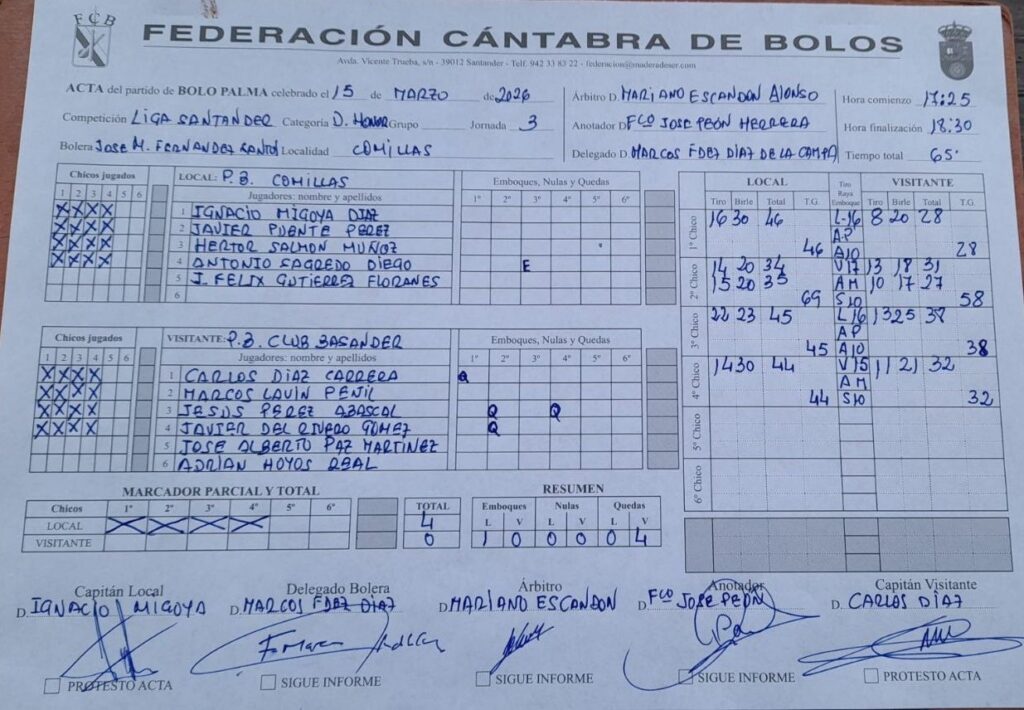 FCB
FEDERACIÓN CÁNTABRA DE BOLOS
Avda. Vicente Trueba, s/n - 39012 Santander - Telf. 942 33 83 22 - federacion@maderadeser.com
ACTA del partido de BOLO PALMA celebrado el 15 de MARZO de 2026
Competición LIGA SANTANDER Categoría D. HONOR Grupo Jornada 3
Bolera JOSE M. FERNANDEZ SANTOS Localidad COMILLAS
Árbitro D. MARIANO ESCANDON ALONSO
Anotador D. Fco JOSE PEÓN HERRERA
Delegado D. MARCOS FDEZ DIAZ DE LA CAMPA
Hora comienzo 17:25
Hora finalización 18:30
Tiempo total 65'
Chicos jugados LOCAL: P.B. COMILLAS Emboques, Nulas y Quedas
1 2 3 4 5 6 Jugadores: nombre y apellidos 1º 2º 3º 4º 5º 6º
X X X X 1 IGNACIO MIGOYA DIAZ
X X X X 2 JAVIER PUENTE PEREZ
X X X X 3 HERTOR SALMON MUÑOZ
X X X X 4 ANTONIO SAGREDO DIEGO E
5 J. FELIX GUTIERREZ FLORANES
6
Chicos jugados VISITANTE: P.B. CLUB BASANDER Emboques, Nulas y Quedas
1 2 3 4 5 6 Jugadores: nombre y apellidos 1º 2º 3º 4º 5º 6º
X X X X 1 CARLOS DIAZ CARRERA Q
X X X X 2 MARCOS LAVIN PENIL
X X X X 3 JESUS PEREZ ABASCAL Q Q
X X X X 4 JAVIER DEL RIVERO GOMEZ Q
5 JOSE ALBERTO PAZ MARTINEZ
6 ADRIAN HOYOS REAL
LOCAL Tiro Raya Emboque VISITANTE
Tiro Birle Total T.G. Tiro Birle Total T.G.
1º Chico 16 30 46 L-16 8 20 28
AP
46 A10 28
2º Chico 14 20 34 V17 13 18 31
15 20 35 AM 10 17 27
69 S10 58
3º Chico 22 23 45 L16 13 25 38
AP
45 A10 38
4º Chico 14 30 44 V15 11 21 32
AM
44 S10 32
5º Chico
6º Chico
MARCADOR PARCIAL Y TOTAL
Chicos 1º 2º 3º 4º 5º 6º TOTAL
LOCAL X X X X 4
VISITANTE 0
RESUMEN
Emboques Nulas Quedas
L V L V L V
1 0 0 0 0 4
Capitán Local Delegado Bolera Árbitro Anotador Capitán Visitante
D. IGNACIO MIGOYA D. MARCOS FDEZ DIAZ D. MARIANO ESCANDON D. Fco JOSE PEÓN D. CARLOS DÍAZ
PROTESTO ACTA SIGUE INFORME SIGUE INFORME SIGUE INFORME PROTESTO ACTA